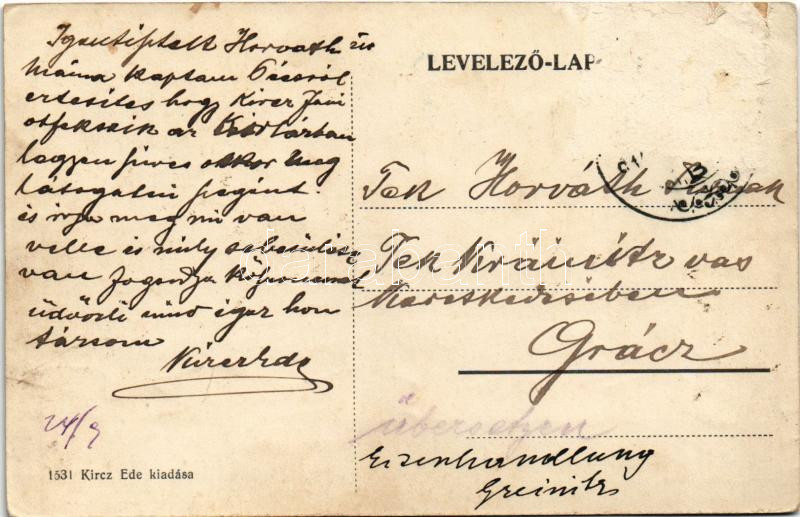 Igentisztelt Horvath úr
máma kaptam Pécsről
ertesites hogy Kircz Jani
ott fekszik az
legyen szives akkor meg
látogatni szegént
és irja meg mi van
velle és mily sebesülése
van fogadja
üdvözli mind igaz hon
társom
Kircz Ede
24/9
1531 Kircz Ede kiadása
LEVELEZŐ-LAP
Tek Horváth
Tek Kráinitz vas
Kereskedésében
Grácz
übersetzen
Eisenhandlung
Greinitz